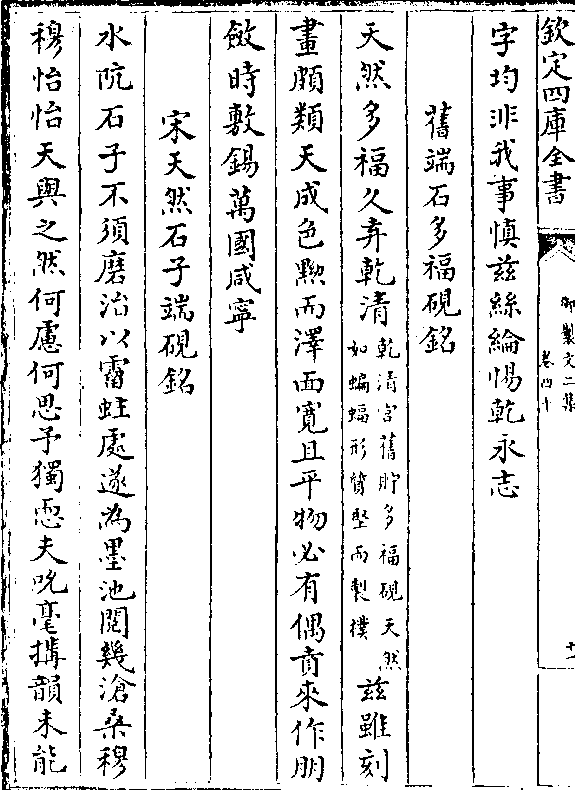 欽定四庫全書
御製文二集
卷四十
十一
字均非我事慎兹絲綸惕乾永志
舊端石多福硯銘
天然多福久弆乾清乾清宫舊貯多福硯天然
如蝙蝠形質堅而製樸兹雖刻
畫頗類天成色黝而澤面寛且平物必有偶賁來作朋
斂時敷錫萬國咸寧
宋天然石子端硯銘
水阬石子不須磨治以霤蛀處遂為墨池閲幾滄桑穆
穆怡怡天與之然何慮何思予獨恧夫吮毫搆韻未能